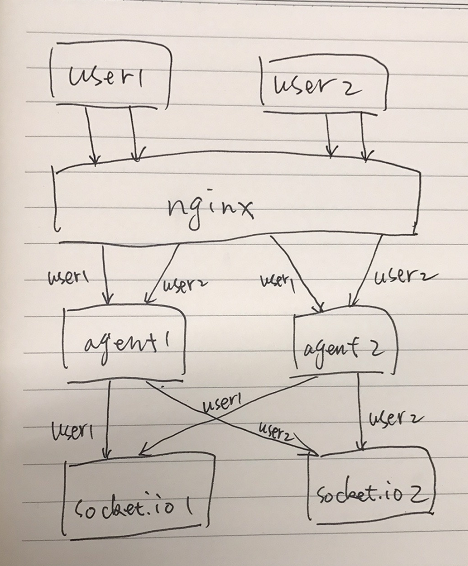 user1
user2
nginx
user1
user2
user1
user2
agent1
agent2
user1
user1
user2
user2
socket.io 1
socket.io 2